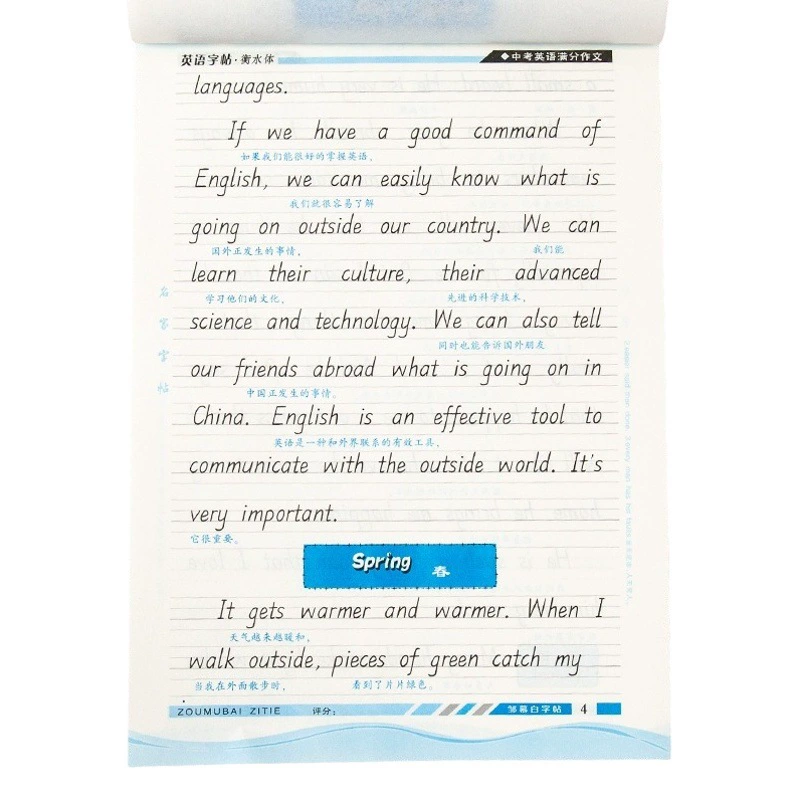 英语字帖·衡水体
◆中考英语满分作文
languages.
If we have a good command of
如果我们能很好的掌握英语，
English, we can easily know what is
我们就很容易了解
going on outside our country. We can
国外正发生的事情， 我们能
learn their culture, their advanced
学习他们的文化， 先进的科学技术，
science and technology. We can also tell
同时也能告诉国外朋友
our friends abroad what is going on in
中国正发生的事情。
China. English is an effective tool to
英语是一种和外界联系的有效工具，
communicate with the outside world. It's
very important.
它很重要。
Spring 春
It gets warmer and warmer. When I
天气越来越暖和，
walk outside, pieces of green catch my
当我在外面散步时， 看到了片片绿色。
名家字帖
ZOUMUBAI ZITIE 评分：
邹慕白字帖 4